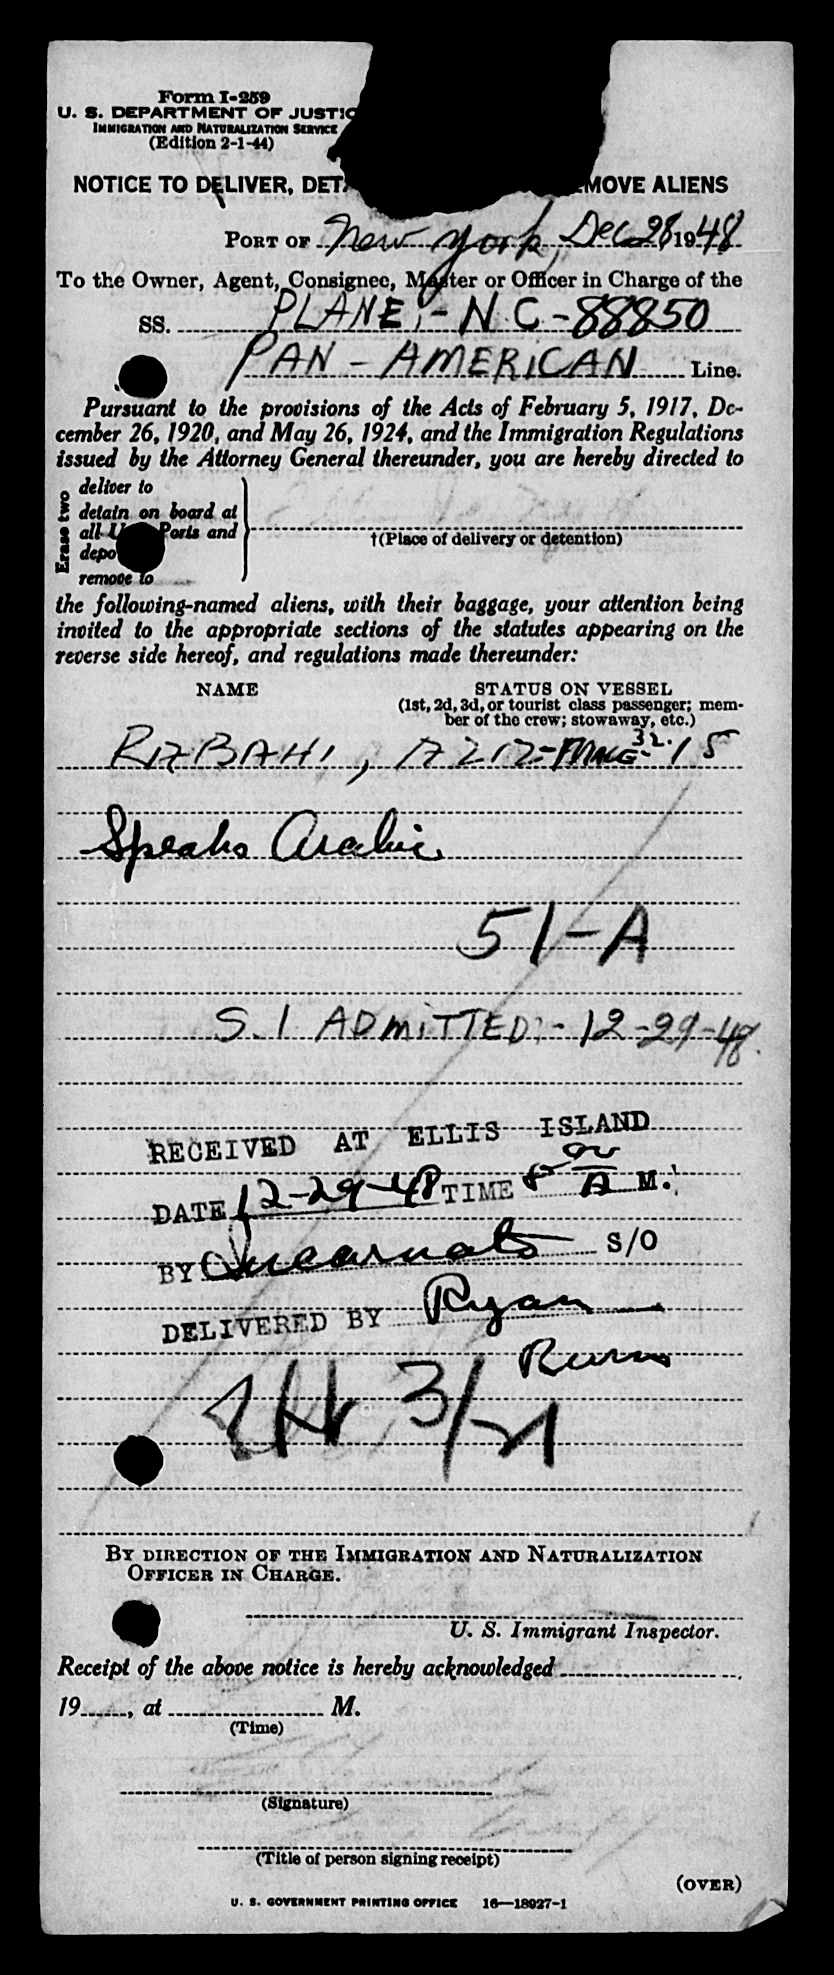 Form I-259
U. S. DEPARTMENT OF JUSTIC
IMMIGRATION AND NATURALIZATION SERVICE
(Edition 2-1-44)
NOTICE TO DELIVER, DETA MOVE ALIENS
PORT OF New York, Dec 28 1948
To the Owner, Agent, Consignee, Master or Officer in Charge of the
SS. PLANE:- N.C-88850
PAN-AMERICAN Line.
Pursuant to the provisions of the Acts of February 5, 1917, De-
cember 26, 1920, and May 26, 1924, and the Immigration Regulations
issued by the Attorney General thereunder, you are hereby directed to
Erase two
deliver to
detain on board at
all U Ports and
depo
remove to
†(Place of delivery or detention)
the following-named aliens, with their baggage, your attention being
invited to the appropriate sections of the statutes appearing on the
reverse side hereof, and regulations made thereunder:
NAME STATUS ON VESSEL
(1st, 2d, 3d, or tourist class passenger; mem-
ber of the crew; stowaway, etc.)
32. 15
Speaks Arabic
51-A
S.I ADMITTED:- 12-29-48.
RECEIVED AT ELLIS ISLAND
DATE 12-29-48 TIME A M.
BY S/O
DELIVERED BY Ryan
BY DIRECTION OF THE IMMIGRATION AND NATURALIZATION
OFFICER IN CHARGE.
U. S. Immigrant Inspector.
Receipt of the above notice is hereby acknowledged
19 , at M.
(Time)
(Signature)
(Title of person signing receipt)
(OVER)
U. S. GOVERNMENT PRINTING OFFICE 16—18927-1